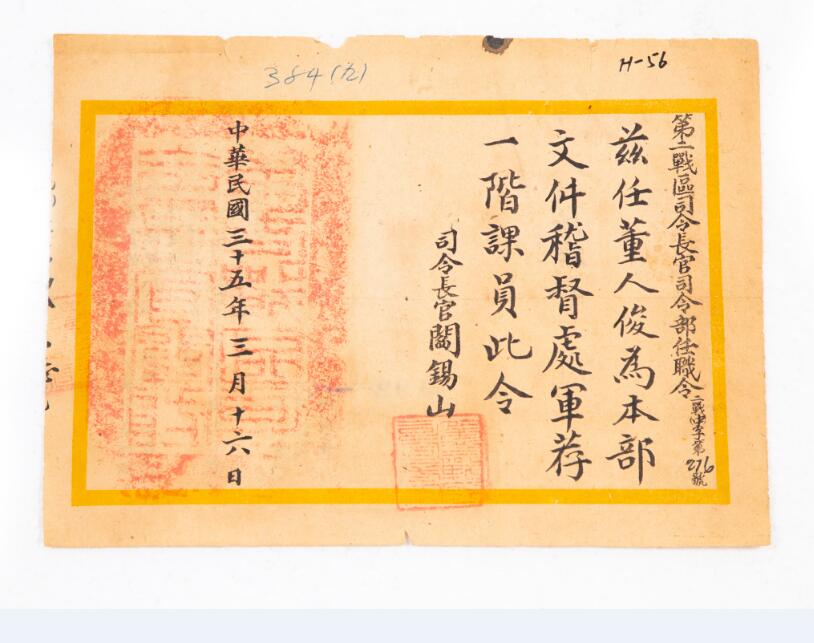 H-56
384
第二戰區司令長官司令部任職令
二戰 字第276號
茲任董人俊為本部
文件稽督處軍荐
一階課員此令
司令長官閻錫山
中華民國三十五年三月十六日